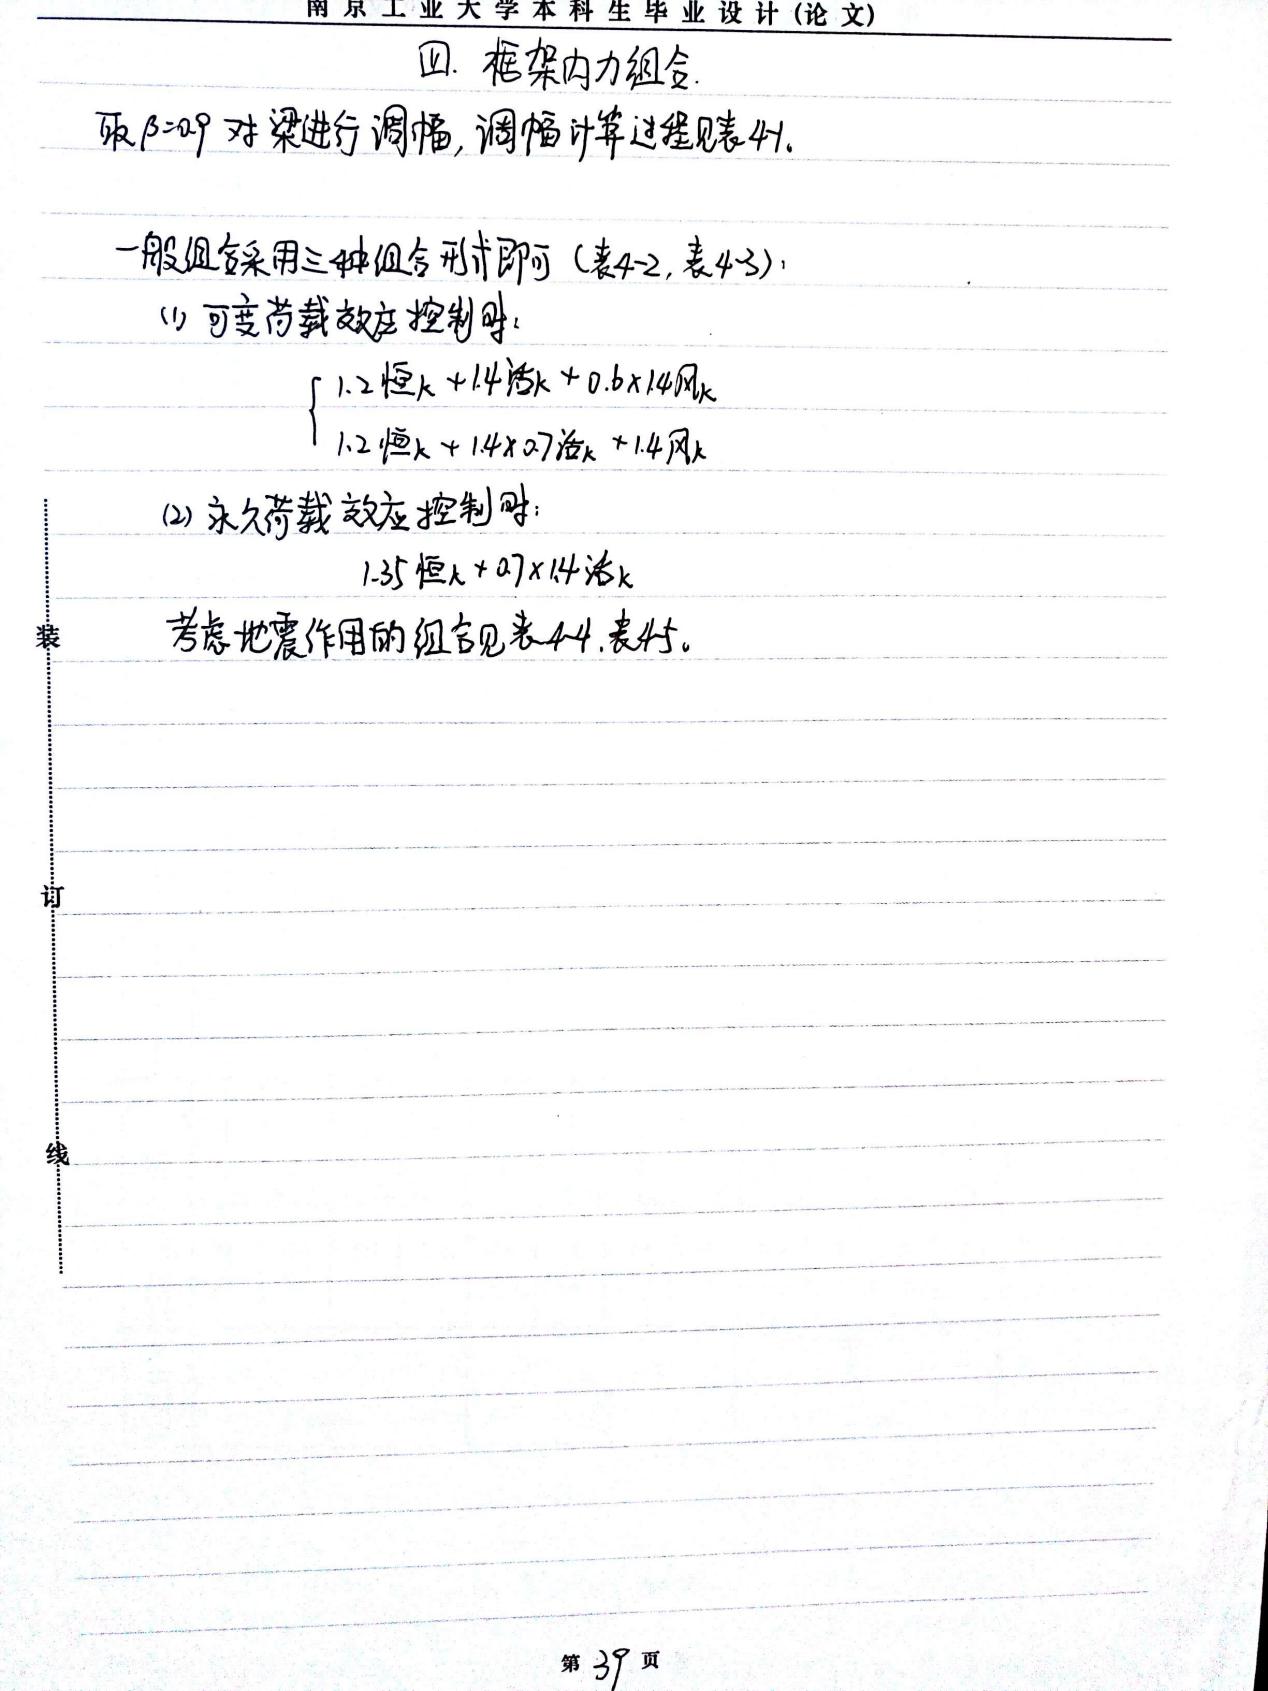 南京工业大学本科生毕业设计(论文)
四. 框架内力组合.
取β=0.9对梁进行调幅,调幅计算过程见表4-1。
一般组合采用三种组合形式即可(表4-2,表4-3):
(1) 可变荷载效应控制时:
1.2恒k+1.4活k+0.6×1.4风k
1.2恒k+1.4×0.7活k+1.4风k
(2) 永久荷载效应控制时:
1.35恒k+0.7×1.4活k
考虑地震作用的组合见表4-4.表4-5。
装
订
线
第39页